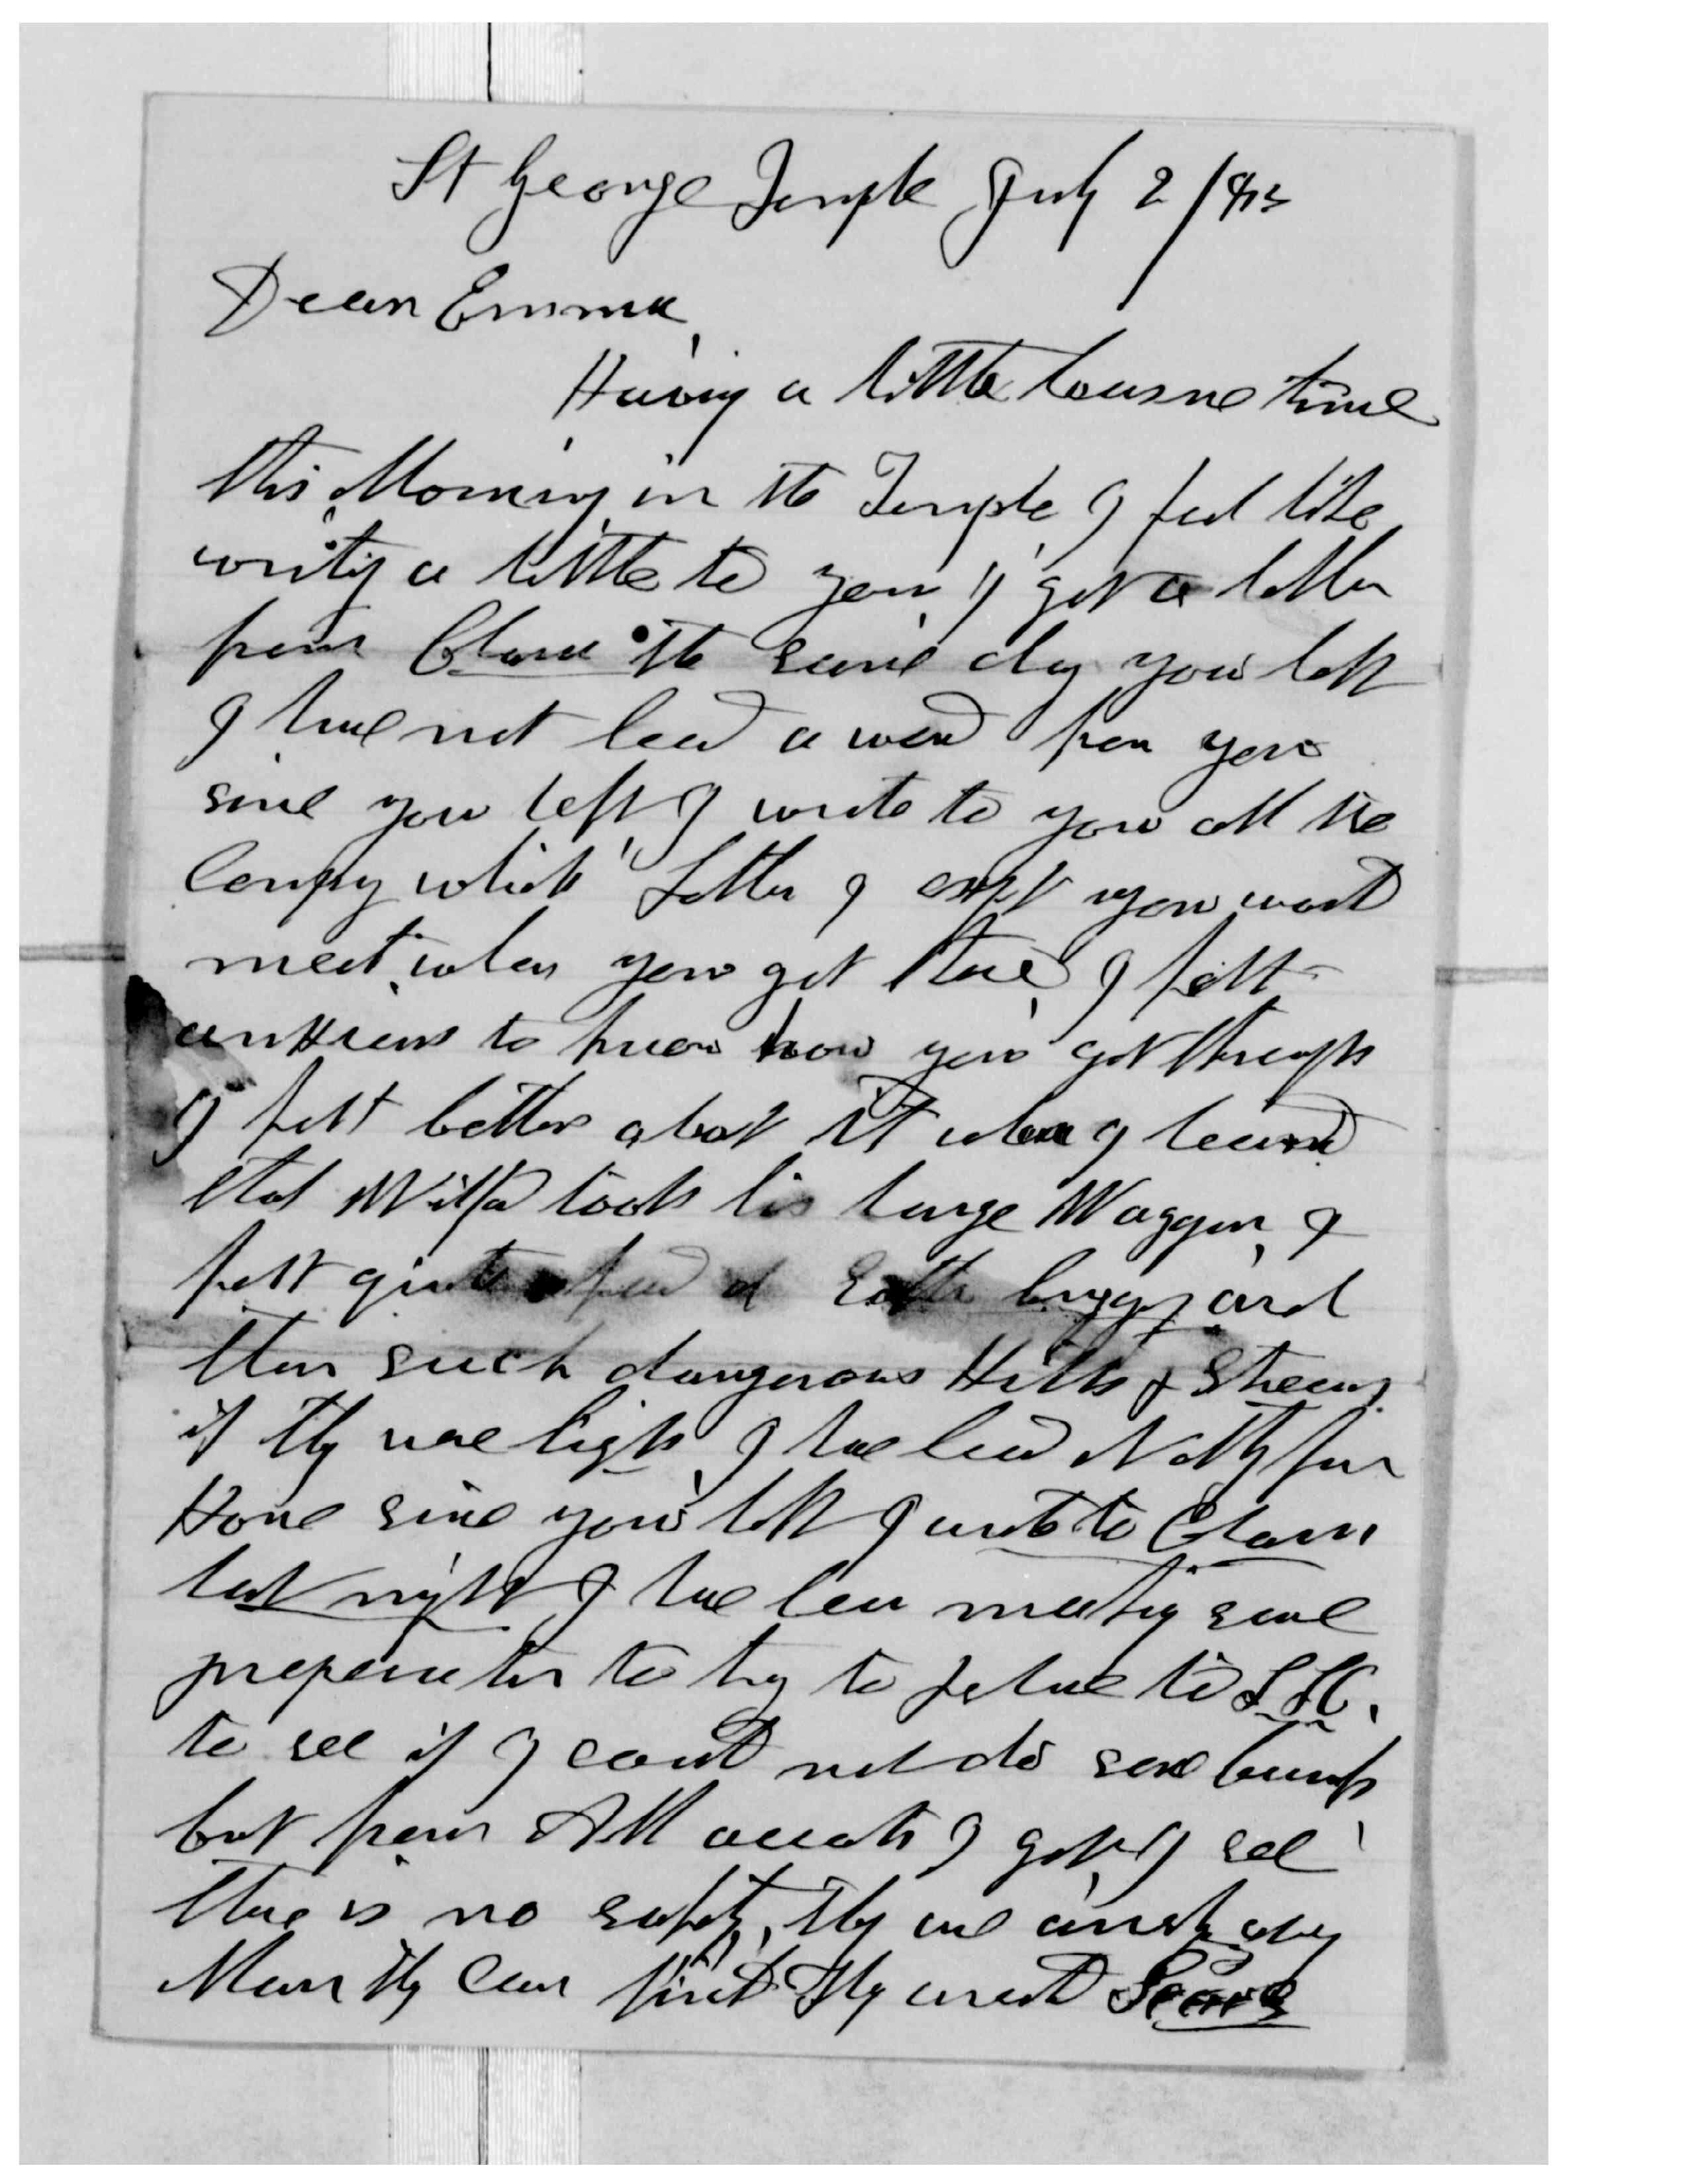 St George Temple July 2/85
Dear Emma,
Having a little leasure time
this Morning in the Temple I feel like
writing a little to you, I got a letter
from Clara the same day you left
I have not heard a word from you
since you left, I wrote to you at the
which Letter I expect you would
meet when you got there, I felt
anxious to know how you got through
I felt better about it when I learned
that Wilford took his large Waggon, I
felt quite afraid of buggy and
them such dangerous Hills & Streams
if they were high, I have heard Nothing from
Home since you left I wrote to Clara
last night I have been making some
preparation to try to return to SLC.
to see if I could not do some business
but from All accounts I get, I see
there is no safety, they are arresting evry
Man they can find They arrest